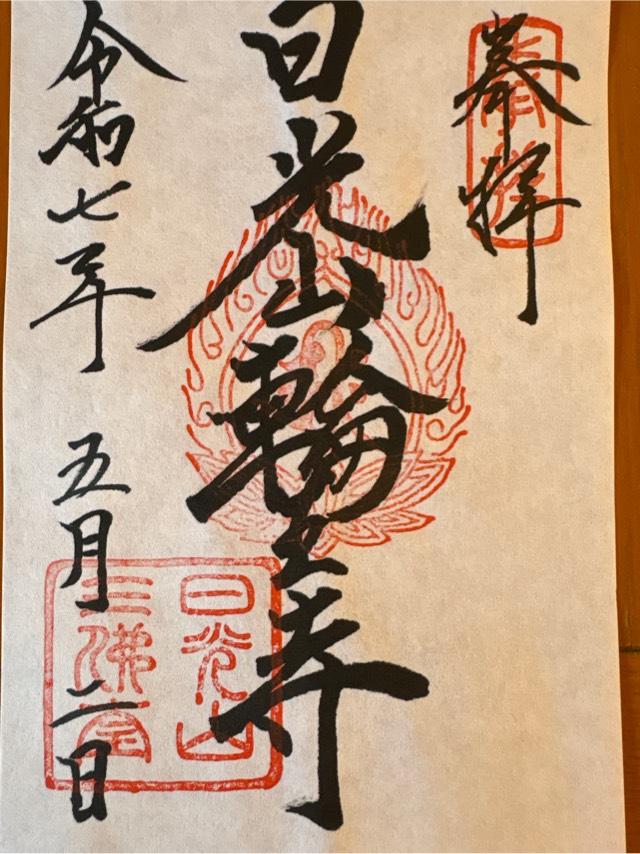 奉拝
日光山輪王寺
令和七年 五月 二日
奉拝
日光山
三佛堂